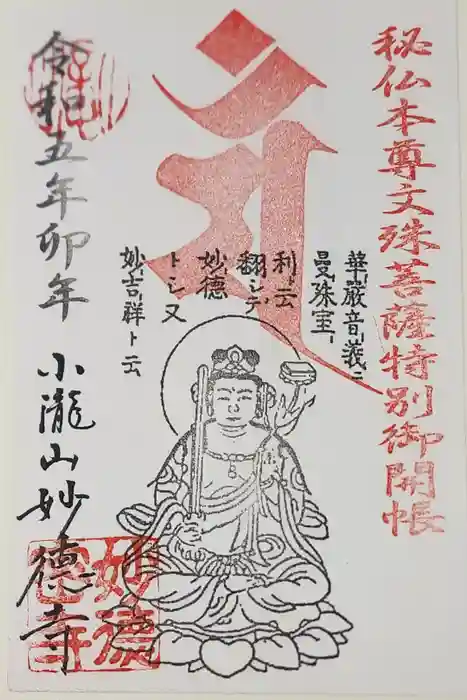 秘仏本尊文殊菩薩特別御開帳
華嚴音義ニ
曼殊室ー
利ト云
翻シテ
妙德
トシ又
妙吉祥ト云
令和五年卯年
小瀧山妙德寺
妙德
寺